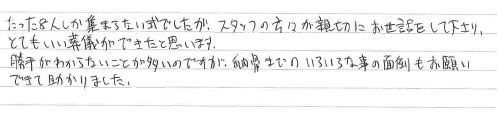 たった8人しか集まらない式でしたが、スタッフの方々が親切にお世話をして下さり、
とてもいい葬儀ができたと思います。
勝手がわからないことが多いのですが、納骨までのいろいろな事の面倒もお願い
できて助かりました。